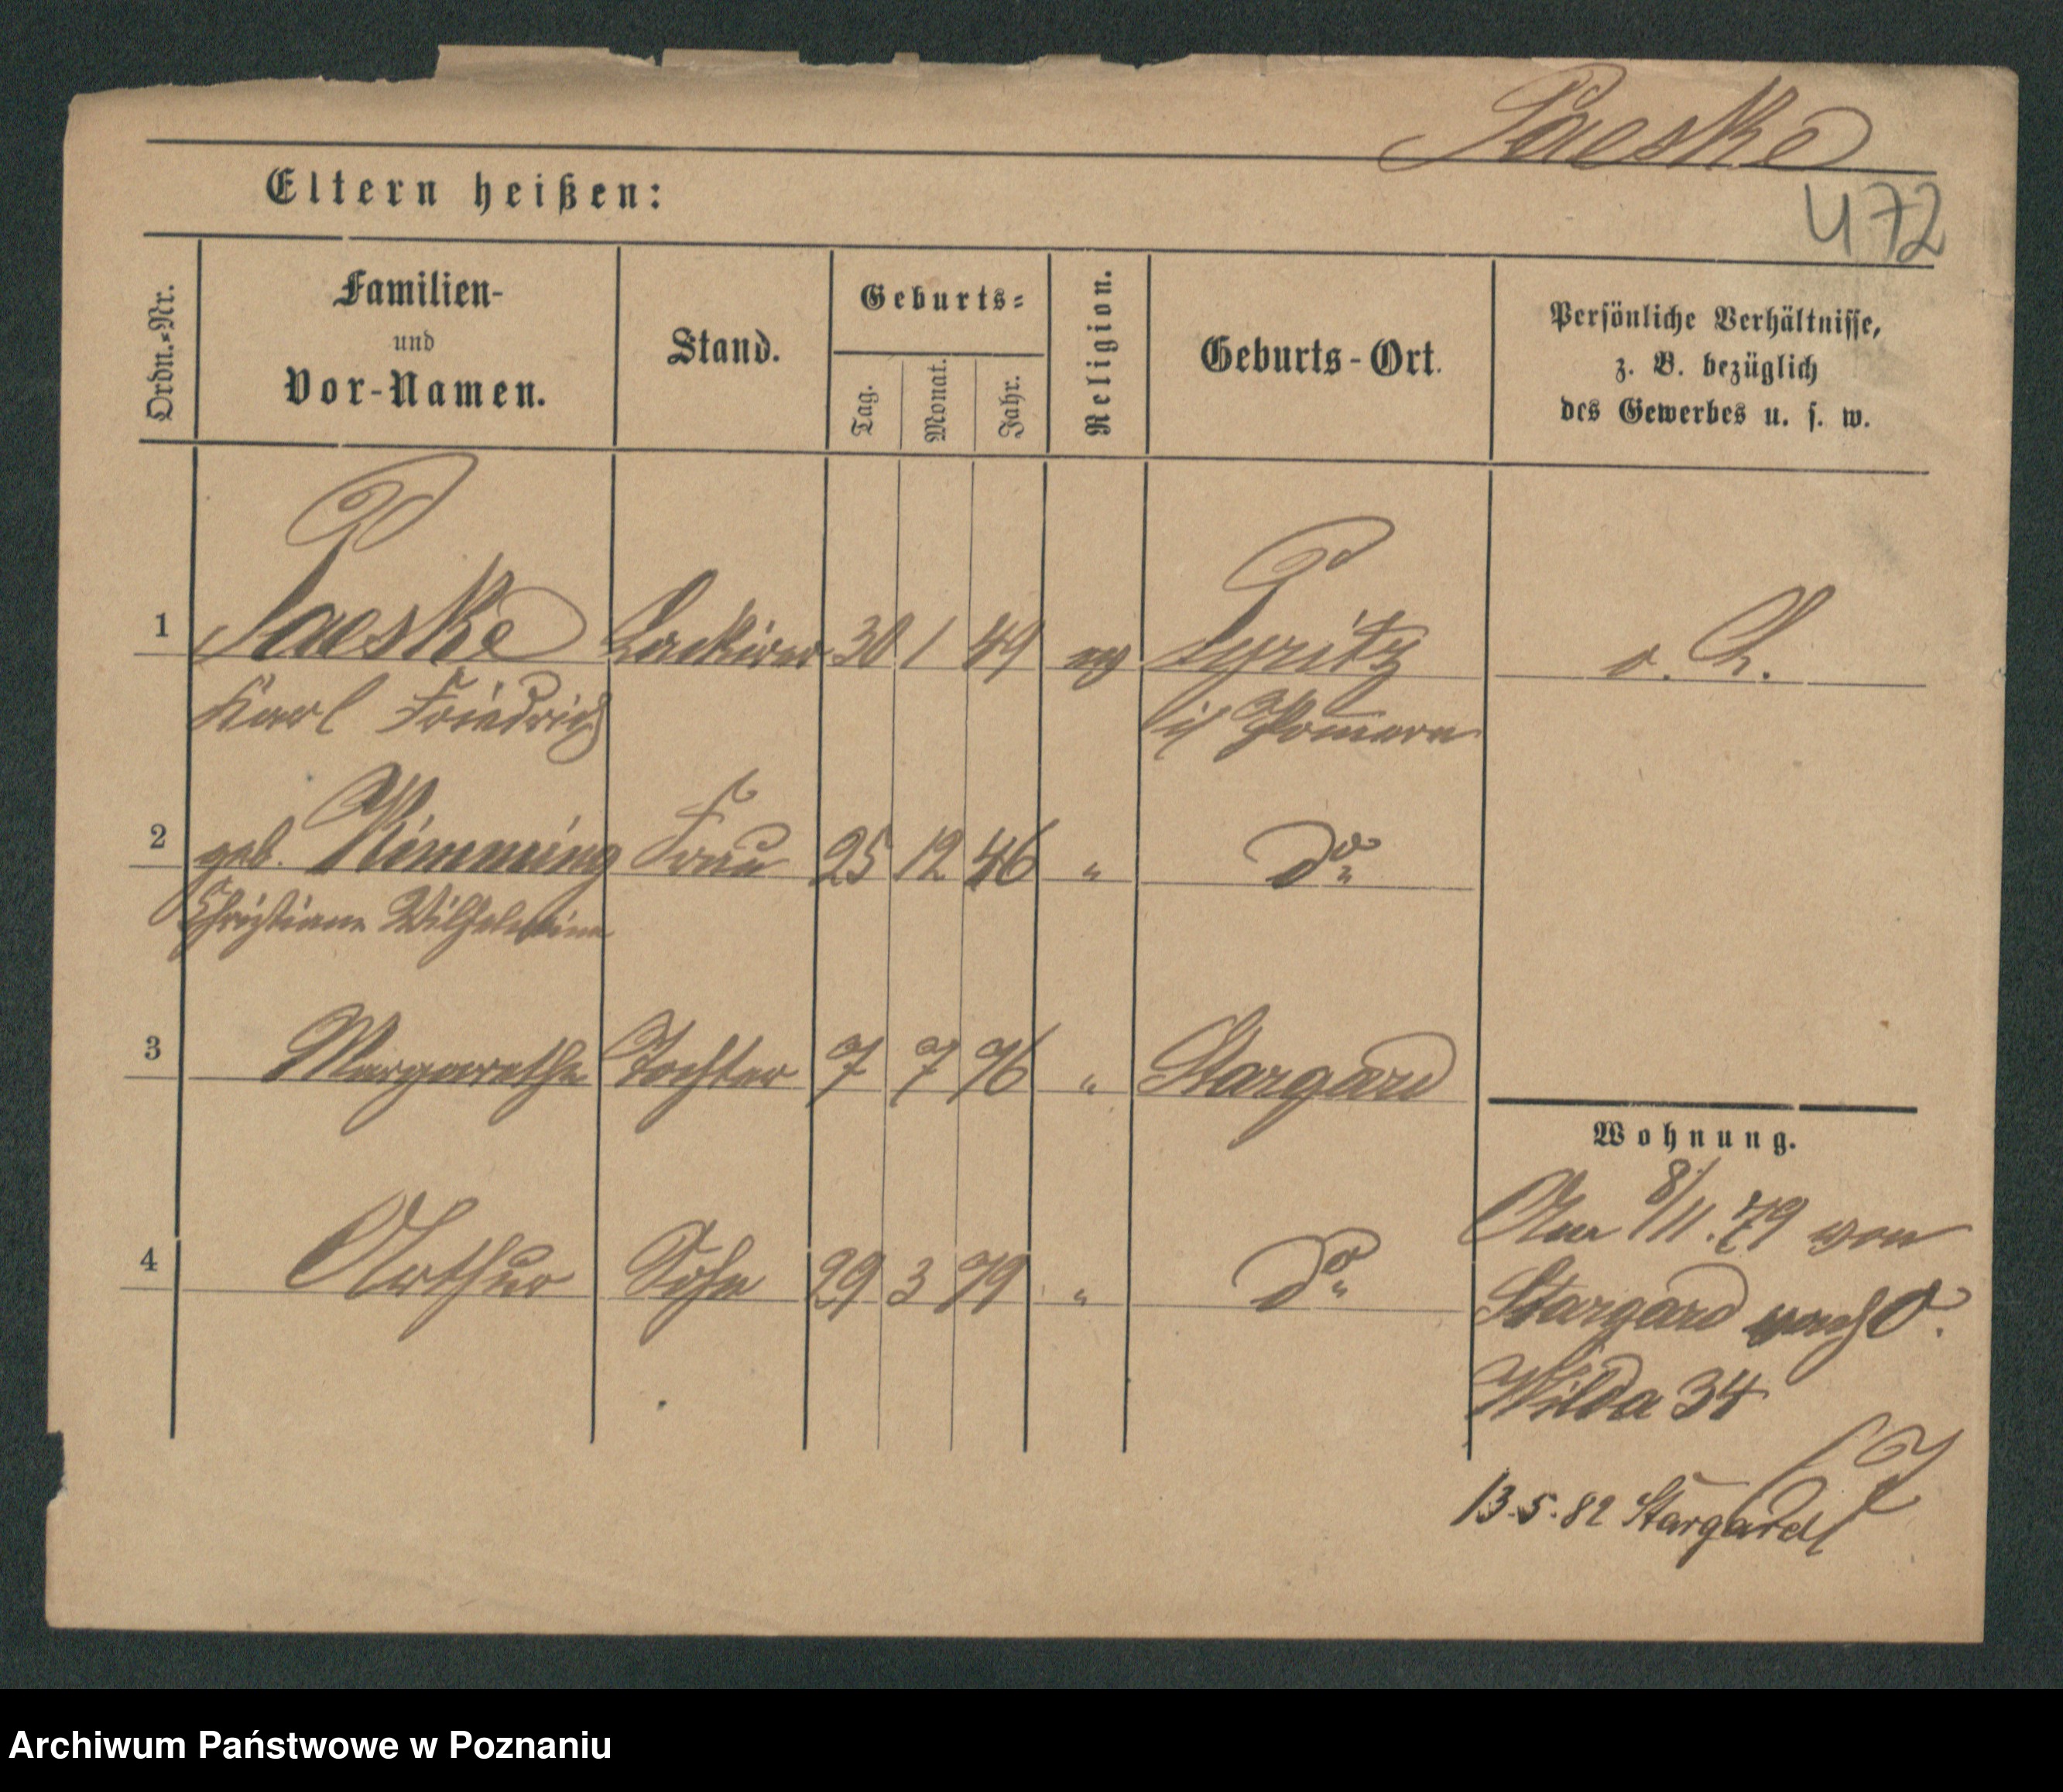 Paeske
472
Eltern heißen:
Ordn.-Nr.
Familien-
und
Vor-Namen.
Stand.
Geburts-
Tag.
Monat.
Jahr.
Religion.
Geburts-Ort.
Persönliche Verhältnisse,
z. B. bezüglich
des Gewerbes u. s. w.
1 Paeske Lackirer 30 1 49 ev Pyritz
Karl Friedrich i/ Pommern
2 geb. Frau 25 12 46 " do
Christiane Wilhelmine
3 Margarethe Tochter 7 7 76 " Stargard
4 Arthur Sohn 29 3 79 " do
Wohnung.
Am 8/11.79 von
Stargard nach O.
Wilda 34
13.5.82 Stargard
Archiwum Państwowe w Poznaniu